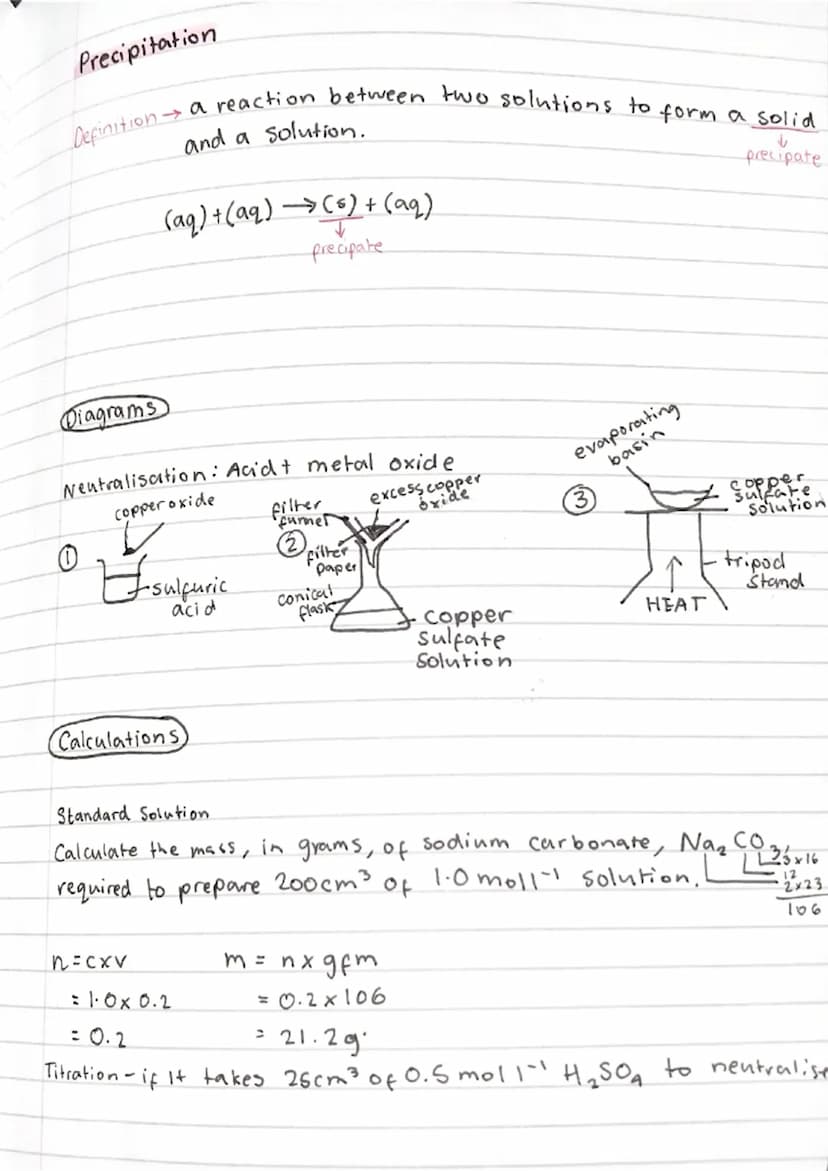 Precipitation
Definition → a reaction between two solutions to form a solid
and a solution.
↓
precipate
(aq) + (aq) → (s) + (aq)
↓
precipate
Diagrams
Neutralisation: Acid + metal oxide
①
copper oxide
sulfuric
acid
②
filter
funnel
excess copper
oxide
filter
paper
conical
flask
copper
sulfate
solution
③
evaporating
basin
copper
sulfate
solution
tripod
stand
↑
HEAT
Calculations
Standard Solution
Calculate the mass, in grams, of sodium carbonate, Na₂CO₃,
required to prepare 200cm³ of 1.0 moll⁻¹ solution.
3x16
12
2x23
106
n=cxv
= 1.0x0.2
= 0.2
m = nxgfm
= 0.2x106
= 21.2g.
Titration - if it takes 26cm³ of 0.5 mol l⁻¹ H₂SO₄ to neutralise